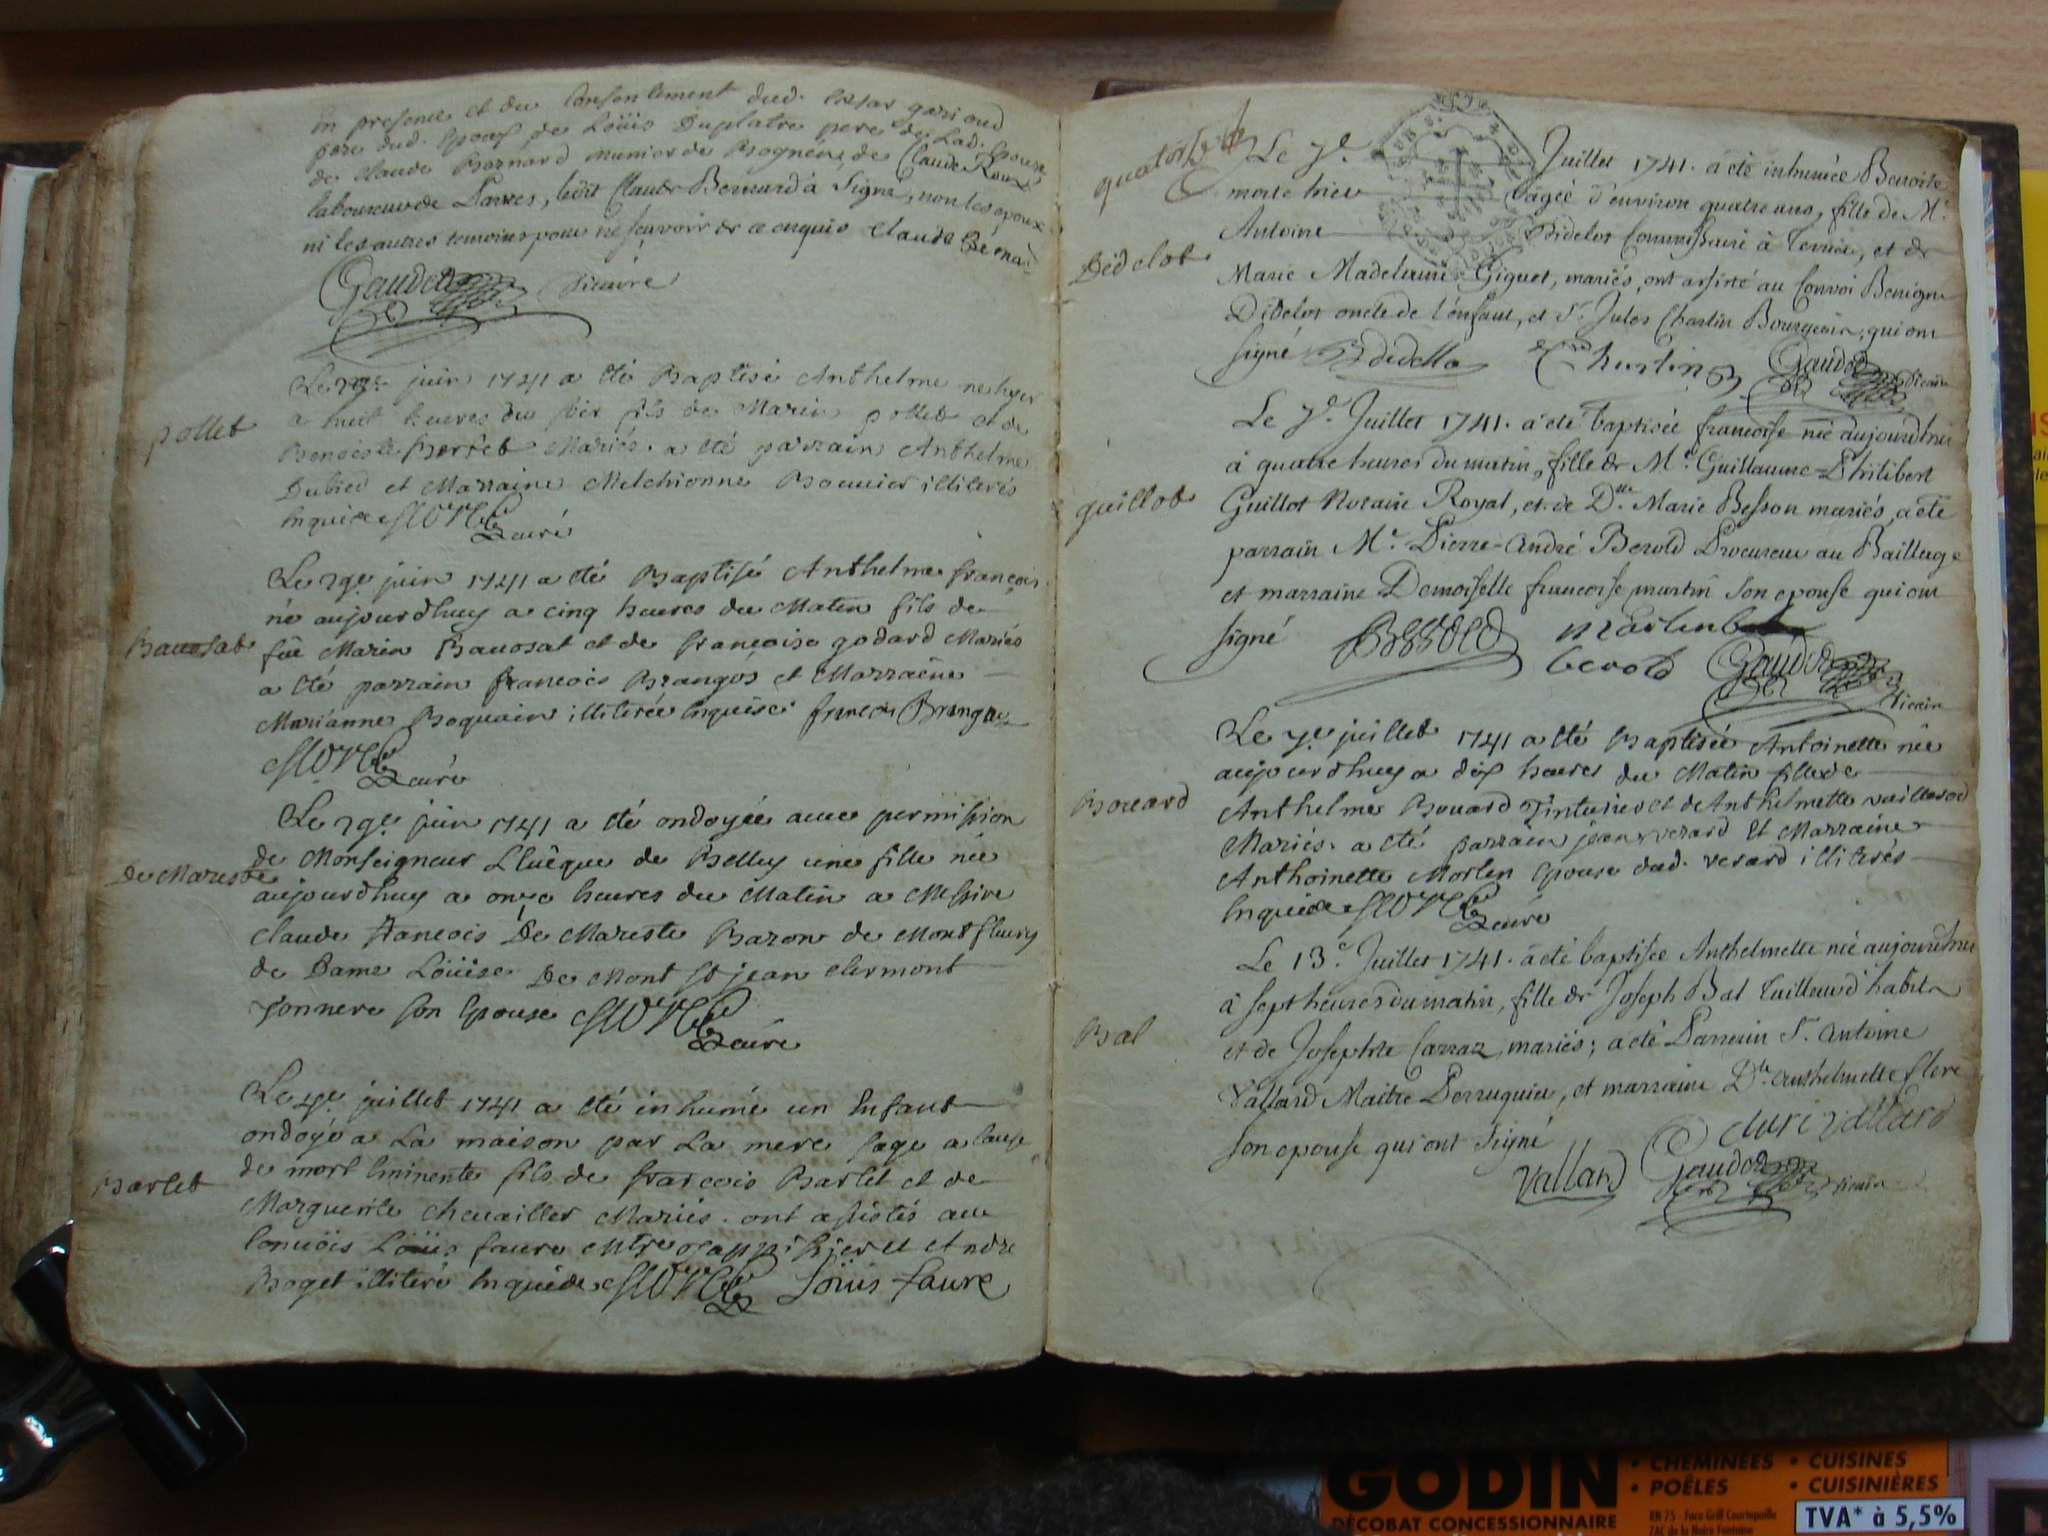 En presence et du Consentement dud. Cesar garioud
pere dud. Epoux de Loüis Duplatre pere de Lad. Epouse
de claude Bernard munier de Rognene, de Claude Roux
laboureur de Parves, ledit Claude Bernard à Signé, non les epoux
ni les autres temoins pour ne sçavoir de ce enquis Claude Berna
Gaudet Vicaire
pollet
juin 1741 a eté Baptisé Anthelme ne hyer
a huit heures du soir fils de Marin pollet et de
Benoiste perret Mariés. a eté parrain Anthelme
Dubied et Marraine Melchionne Bonnier illiterés
Enquise
curé
Bauosat
Le 29e juin 1741 a eté Baptisé Anthelme françois
né aujourdhuy a cinq heures du Matin fils de
fûe Marin Bauosat et de françoise godard Mariés
a eté parrain francois Brangos et Marraine
Marianne Boquain illiterée Enquise francois Brangos
curé
De Mareste
Le 29e juin 1741 a eté ondoyée auec permission
de Monseigneur L'Euêque de Belley une fille née
aujourdhuy a onze heures du Matin a Messire
claude francois De Mareste Baron de Montfleury
de Dame Loüise De Mont St jean clermont
Tonnere son Epouse
curé
Barlet
juillet 1741 a eté inhumé un Enfant
ondoyé a La maison par La mere sage a Cause
de mort Eminente fils de francois Barlet et de
Marguerite cheuailler Mariés. ont assistés au
Conuois Loüis faure Mtre et Andre
Boget illiteré Enquis Loüis faure
quatorze
Didelot
Le 7e. Juillet 1741. a été inhumée Benoite
morte hier agée d'environ quatre ans, fille de Me.
Antoine Didelot Commissaire à Terrier, et de
Marie Madelaine Giguet, mariés, ont assisté au Convoi Benigne
Didelot oncle de l'enfant, et Sr. Jules Chastin Bourgeois, qui ont
signé B didello Chastin Gaudet Vicaire
guillot
Le 7e. Juillet 1741. a été baptisée francoise née aujourdhui
à quatre heures du matin, fille de Me. Guillaume-Philibert
Guillot Notaire Royal, et de Dlle. Marie Besson mariés, a été
parrain Me. Pierre-André Berold Procureur au Bailliage
et marraine Demoiselle francoise martin son epouse qui ont
signé Berold martin
berold Gaudet Vicaire
Bouard
Le 7e juillet 1741 a eté Baptisée Antoinette née
aujourdhuy a dix heures du Matin fille de
Anthelme Bouard Tinturier et de Anthelmette
Mariés. a eté parrain jean verard Et Marraine
Anthoinette Morten Epouse dud. verard illiterés
Enquise
curé
Bal
Le 13e. Juillet 1741. a été baptisée Anthelmette née aujourdhui
à sept heures du matin, fille de Joseph Bal Tailleur d'habits
et de Josephte Carraz, mariés; a été Parrain Sr. Antoine
Vallard Maitre Perruquier, et marraine Dlle. Anthelmette Clerc
son epouse qui ont signé
Vallard Gaudet Vicaire
GODIN
DÉCOBAT CONCESSIONNAIRE
• CHEMINÉES • CUISINES
• POÊLES • CUISINIÈRES
TVA* à 5,5%